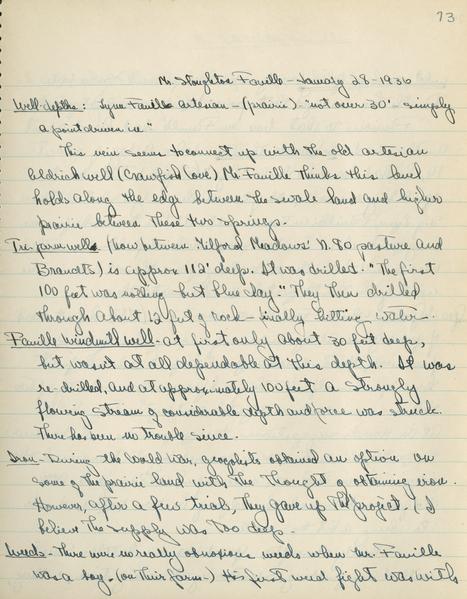 73
Mr. Stoughton Faville - January 28 - 1936
Well-depths: Lynn Faville artesian - (prairie). "not over 30' - simply
a point driven in"
This vein seems to connect up with the old artesian
well (Crawfish Cove) Mr. Faville thinks this level
holds along the edge between the swale land and higher
prairie between these two springs.
farm well (now between Milford Meadows' N. 80 pasture and
) is approx 112' deep. It was drilled. "The first
100 feet was nothing but blue clay." They then drilled
through about 12 feet of rock - finally hitting water.
Faville windmill well - at first only about 30 feet deep,
but wasn't at all dependable at this depth. It was
re-drilled, and at approximately 100 feet a strongly
flowing stream of considerable depth and force was struck.
There has been no trouble since.
Iron - During the World War, geologists obtained an option on
some of the prairie land with the thought of obtaining iron.
However, after a few trials, they gave up the project. (I
believe the supply was too deep.
Weeds - There were no really obnoxious weeds when Mr. Faville
was a boy. (on their farm -) His first weed fight was with